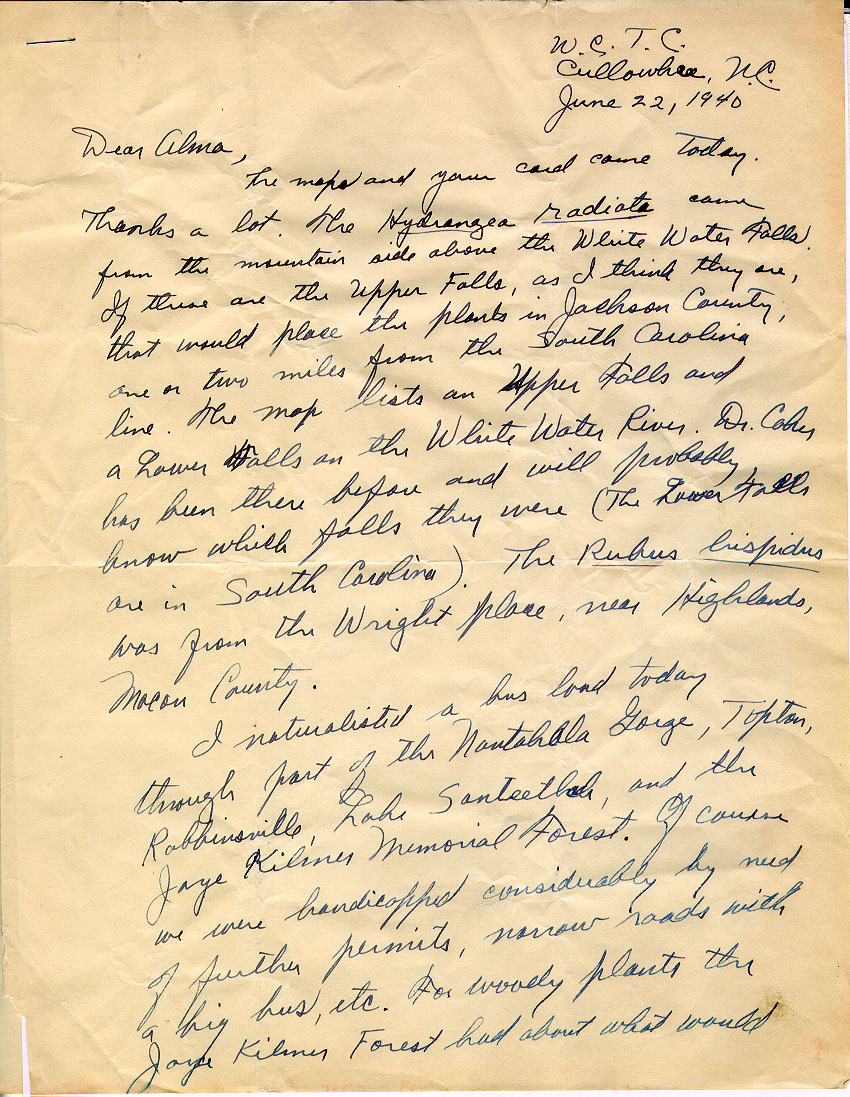 W. C. T. C.
Cullowhee, N.C.
June 22, 1940
Dear Alma,
The maps and your card came today.
Thanks a lot. The Hydrangea radiata came
from the mountain side above the White Water Falls.
If these are the Upper Falls, as I think they are,
that would place the plants in Jackson County,
one or two miles from the South Carolina
line. The map lists an Upper Falls and
a Lower Falls on the White Water River. Dr. Coker
has been there before and will probably
know which falls they were (The Lower Falls
are in South Carolina). The Rubus hispidus
was from the Wright place, near Highlands,
Macon County.
I naturalisted a bus load today
through part of the Nantahala Gorge, Topton,
Robbinsville, Lake Santeetlah, and the
Joye Kilmer Memorial Forest. Of course
we were handicapped considerably by need
of further permits, narrow roads with
a big bus, etc. For woody plants the
Joye Kilmer Forest had about what would